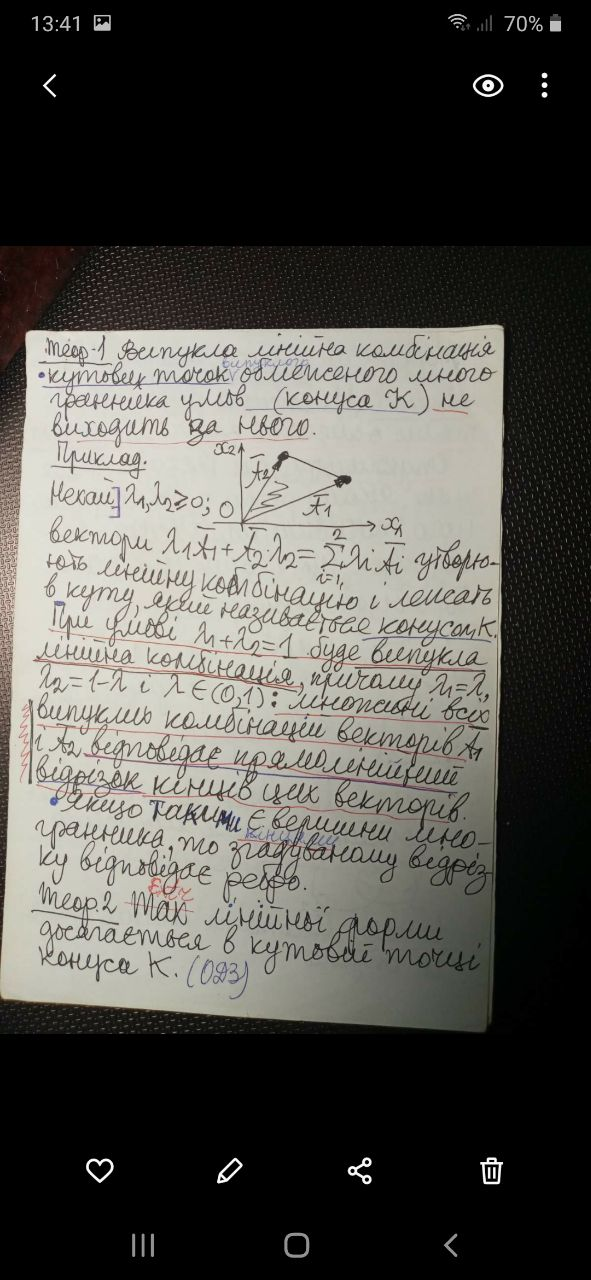 13:41
70%
Теор-1 Випукла лінійна комбінація
випуклого
• кутових точок обмеженого много
гранника умов (конуса K) не
виходить за нього.
Приклад.
x₂
Ā₂
Ā₁
O
x₁
Нехай λ₁,λ₂ ≥ 0;
вектори λ₁Ā₁+Ā₂λ₂= Σ λi Āi утворю-
2
i=1
ють лінійну комбінацію і лежать
в куту, який називається конусом K.
При умові λ₁+λ₂=1 буде випукла
лінійна комбінація, причому λ₁=λ,
λ₂=1-λ і λ∈(0,1): множині всіх
випуклих комбінацій векторів Ā₁
і Ā₂ відповідає прямолінійний
відрізок кінців цих векторів.
• Якщо такими є вершини мно-
кінцями
гранника, то згадуваному відріз
ку відповідає ребро.
Теор 2 Max лінійної форми
досягається в кутовій точці
конуса K. (ОДЗ)